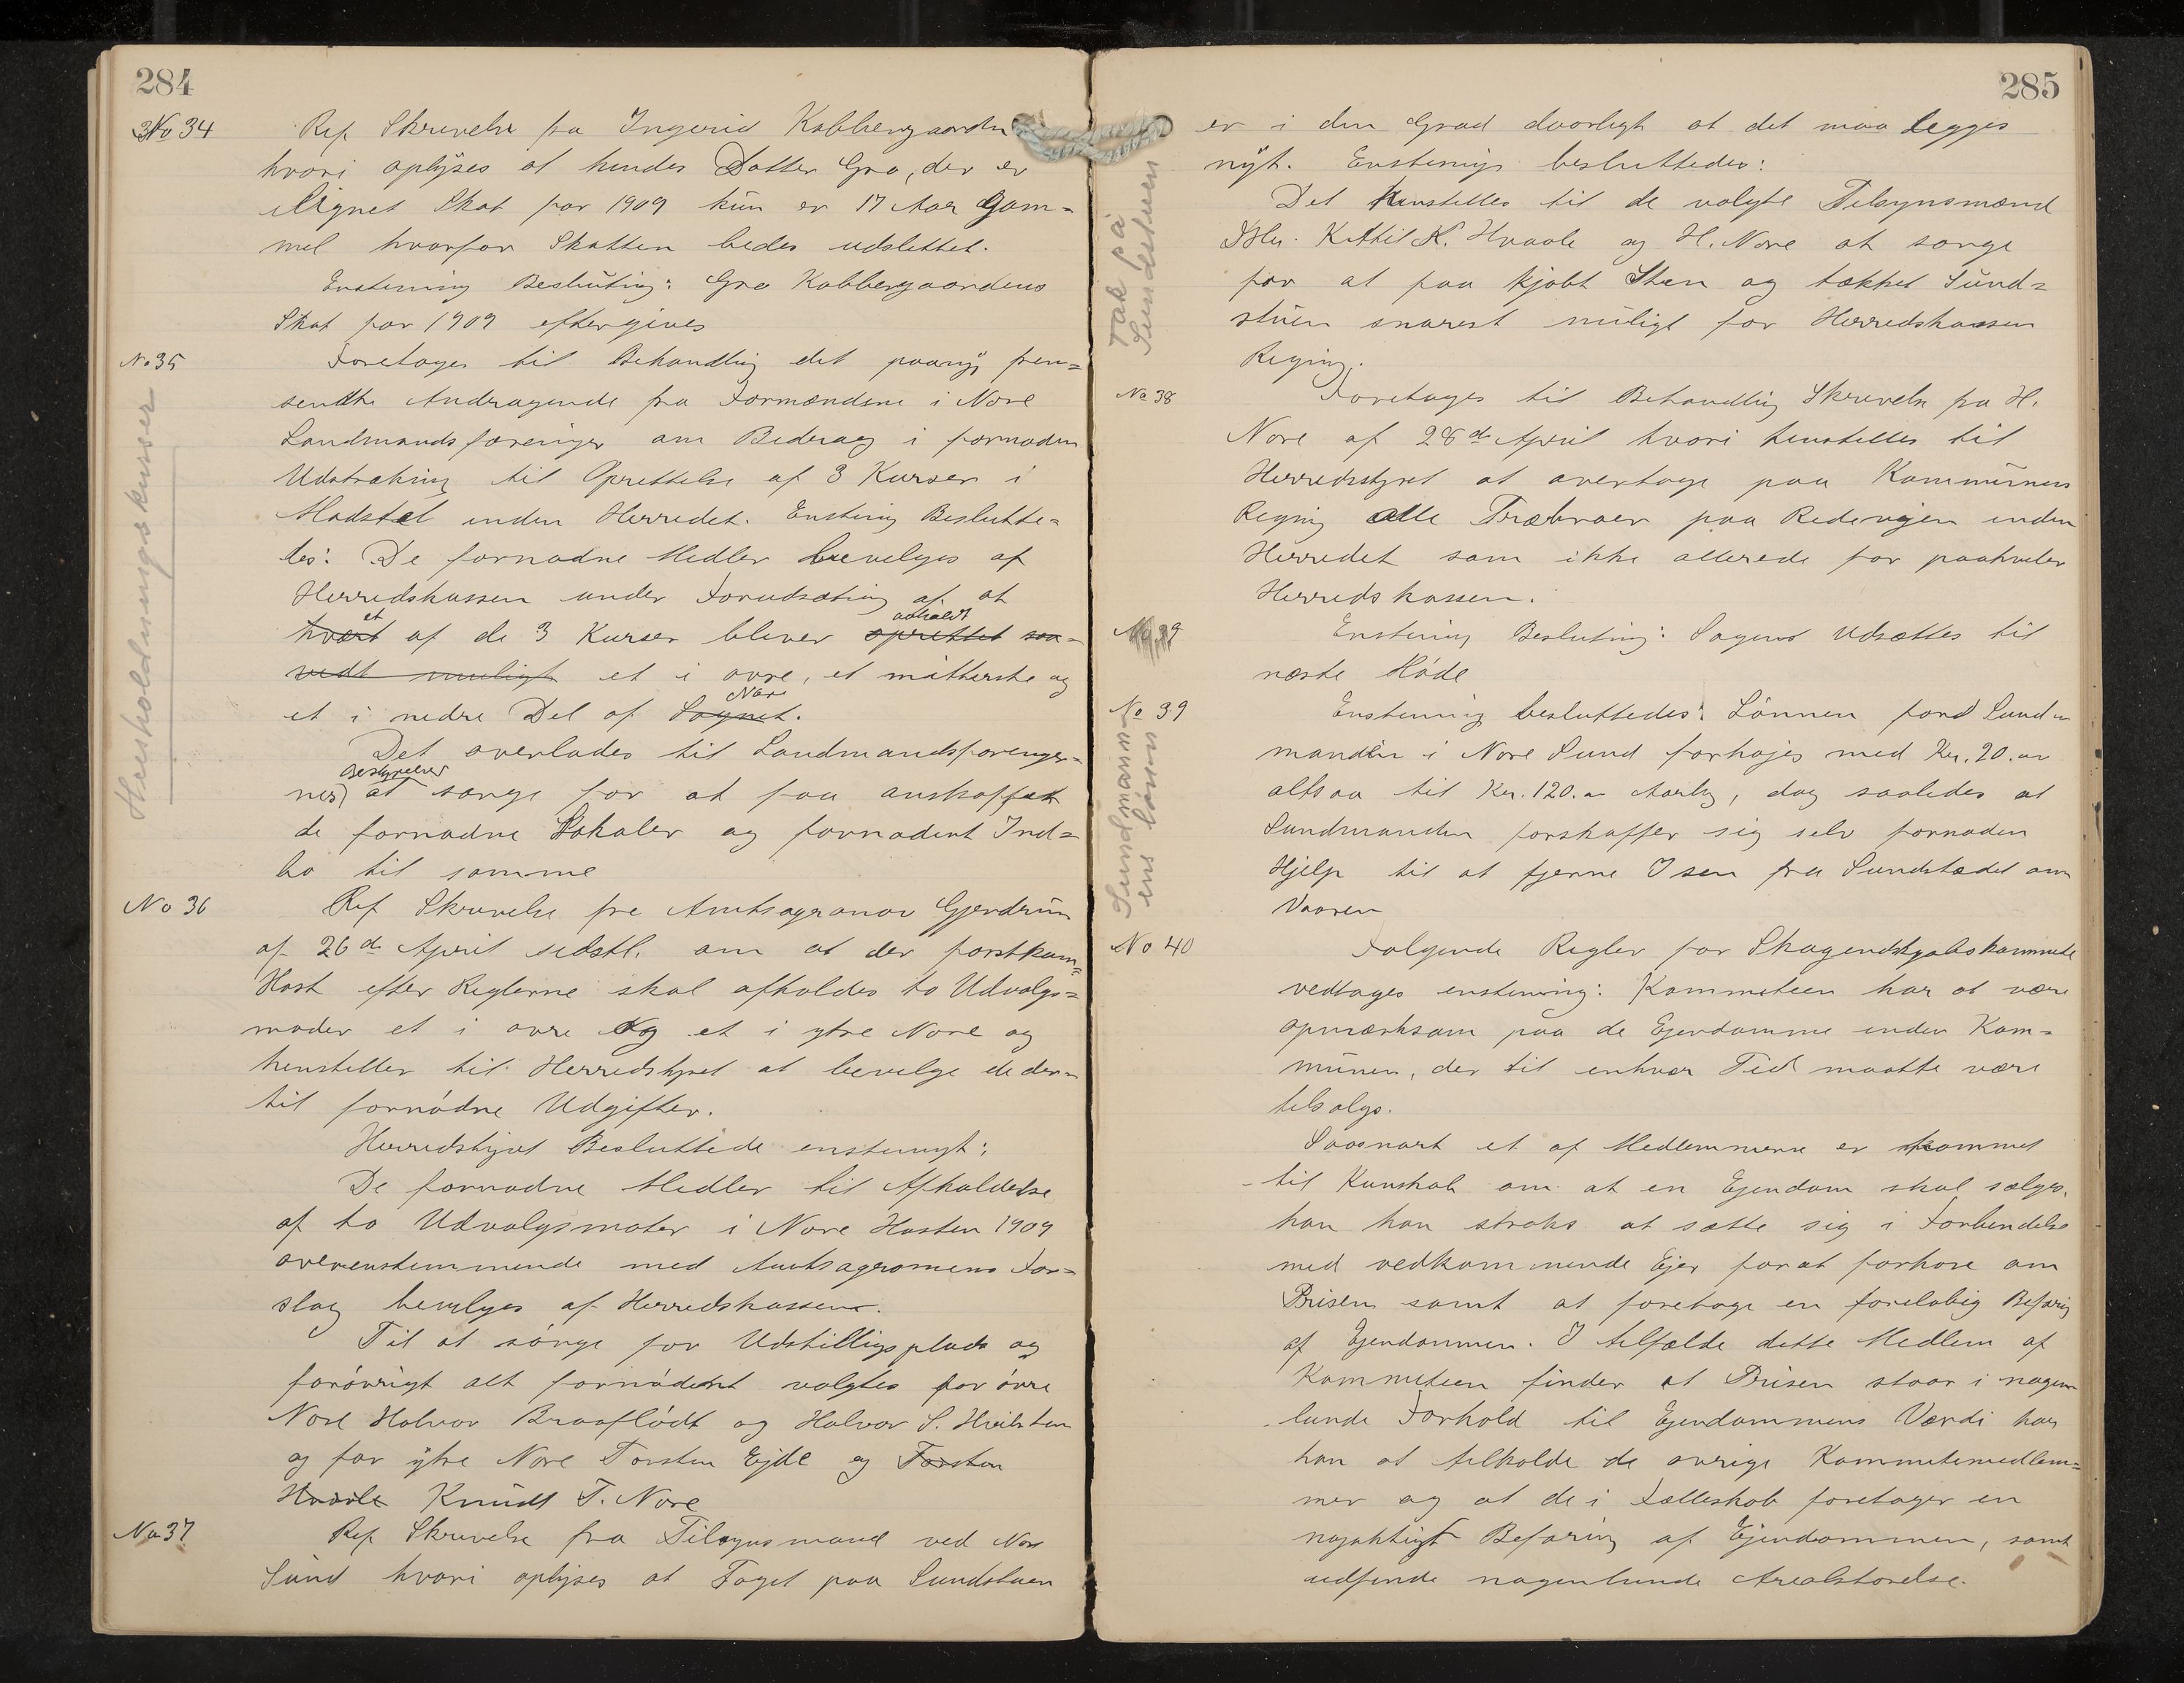 284
No 34 Ref Skrivelse fra Ingerid Kobbergaarden
hvori oplyses at hendes Datter Gro, der er
ilignet Skat for 1909 kun er 17 Aar gam=
mel hvorfor Skatten bedes udslettet.
Enstemmig Beslutning: Gro Kobbergaardens
Skat for 1909 eftergives
No 35 Foretages til Behandling det paany frem=
sendte Andragende fra Formændene i Nore
Landmandsforeninger om Bidrag i fornøden
Udstrækning til Oprettelse af 3 Kurser i
Madstel inden Herredet. Enstemig Beslutte=
des: De fornødne Midler bevilges af
Herredskassen under Forudsætning af at
hvert et af de 3 Kurser bliver oprettet avholdt saa=
vidt muligt et i øvre, et i mitterste og
et i nedre Del af Sognet. Nore
Det overlades til Landmandsforeninger=
nes Bestyrelser at sørge for at faa anskaffet
de fornødne Lokaler og fornødent Ind=
bo til samme
Husholdningskurser
No 36 Ref Skrivelse fra Amtsagronom Gjerdrum
af 26de April sidstl. om at der førstkom=
Høst efter Reglerne skal afholdes to Udvalgs=
møder et i øvre og et i ytre Nore og
henstiller til Herredstyret at bevilge de der=
til fornødne Udgifter.
Herredstyret Besluttede enstemigt:
De fornødne Midler til Afholdelse
af to Udvalgsmøter i Nore Høsten 1909
overensstemmende med Amtsagronomens For=
slag bevilges af Herredskassen.
Til at sørge for Udstillingsplads og
forøvrigt alt fornødent valgtes for øvre
Nore Halvor Braaflødt og Halvor S.
og for ytre Nore Torsten Eide og Torsten
Hvaale Knudt T. Nore
No 37 Ref Skrivelse fra Tilsynsmand ved Nore
Sund hvori oplyses at Taget paa Sundstuen
285
er i den Grad daarligt at det maa legges
nyt. Enstemig besluttedes:
Det henstilles til de valgte Tilsynsmænd
Kittil K. Hvaale og H. Nore at sørge
for at faa kjøbt Sten og tækket Sund=
stuen snarest muligt for Herredskassen
Regning.
Tak på
Sundestuen
No 38 Foretages til Behandling Skrivelse fra H.
Nore af 28de April hvori henstilles til
Herredsstyret at overtage paa Kommunens
Regning alle Træbroer paa Rideveien inden
Herredet som ikke allerede før paahviler
Herredskassen.
No 39 Enstemig Beslutning: Sagens Udsættes til
næste Møde
No 39 Enstemig besluttedes: Lønnen for Sund=
manden i Nore Sund forhøjes med Kr. 20.00
altsaa til Kr. 120.00 Aarlig, dog saaledes at
Sundmanden forskaffer sig selv fornøden
Hjelp til at fjerne Isen fra Sundstædet om
Vaaren
Sundmannens
løn
No 40 Følgende Regler for Skogendskjøbskommite
vedtages enstemig: Kommiteen har at være
opmærksom paa de Ejendomme inden Kom=
munen, der til enhver Tid maatte være
tilsalgs.
Saasnart et af Medlemmerne er kommet
til Kunskab om at en Ejendom skal sælges,
har han straks at sætte sig i Forbindelse
med vedkommende Ejer forat forhøre om
Prisen samt at foretage en foreløbig Befaring
af Ejendommen. I tilfælde dette Medlem af
Kommiteen finder at Prisen staar i nogen=
lunde Forhold til Ejendommens Værdi har
han at tilkalde de øvrige Kommitemedlem=
mer og at de i Fælleskab foretager en
nøjaktigt Befaring af Ejendommen, samt
udfinde nogenlunde Arealstørelse.